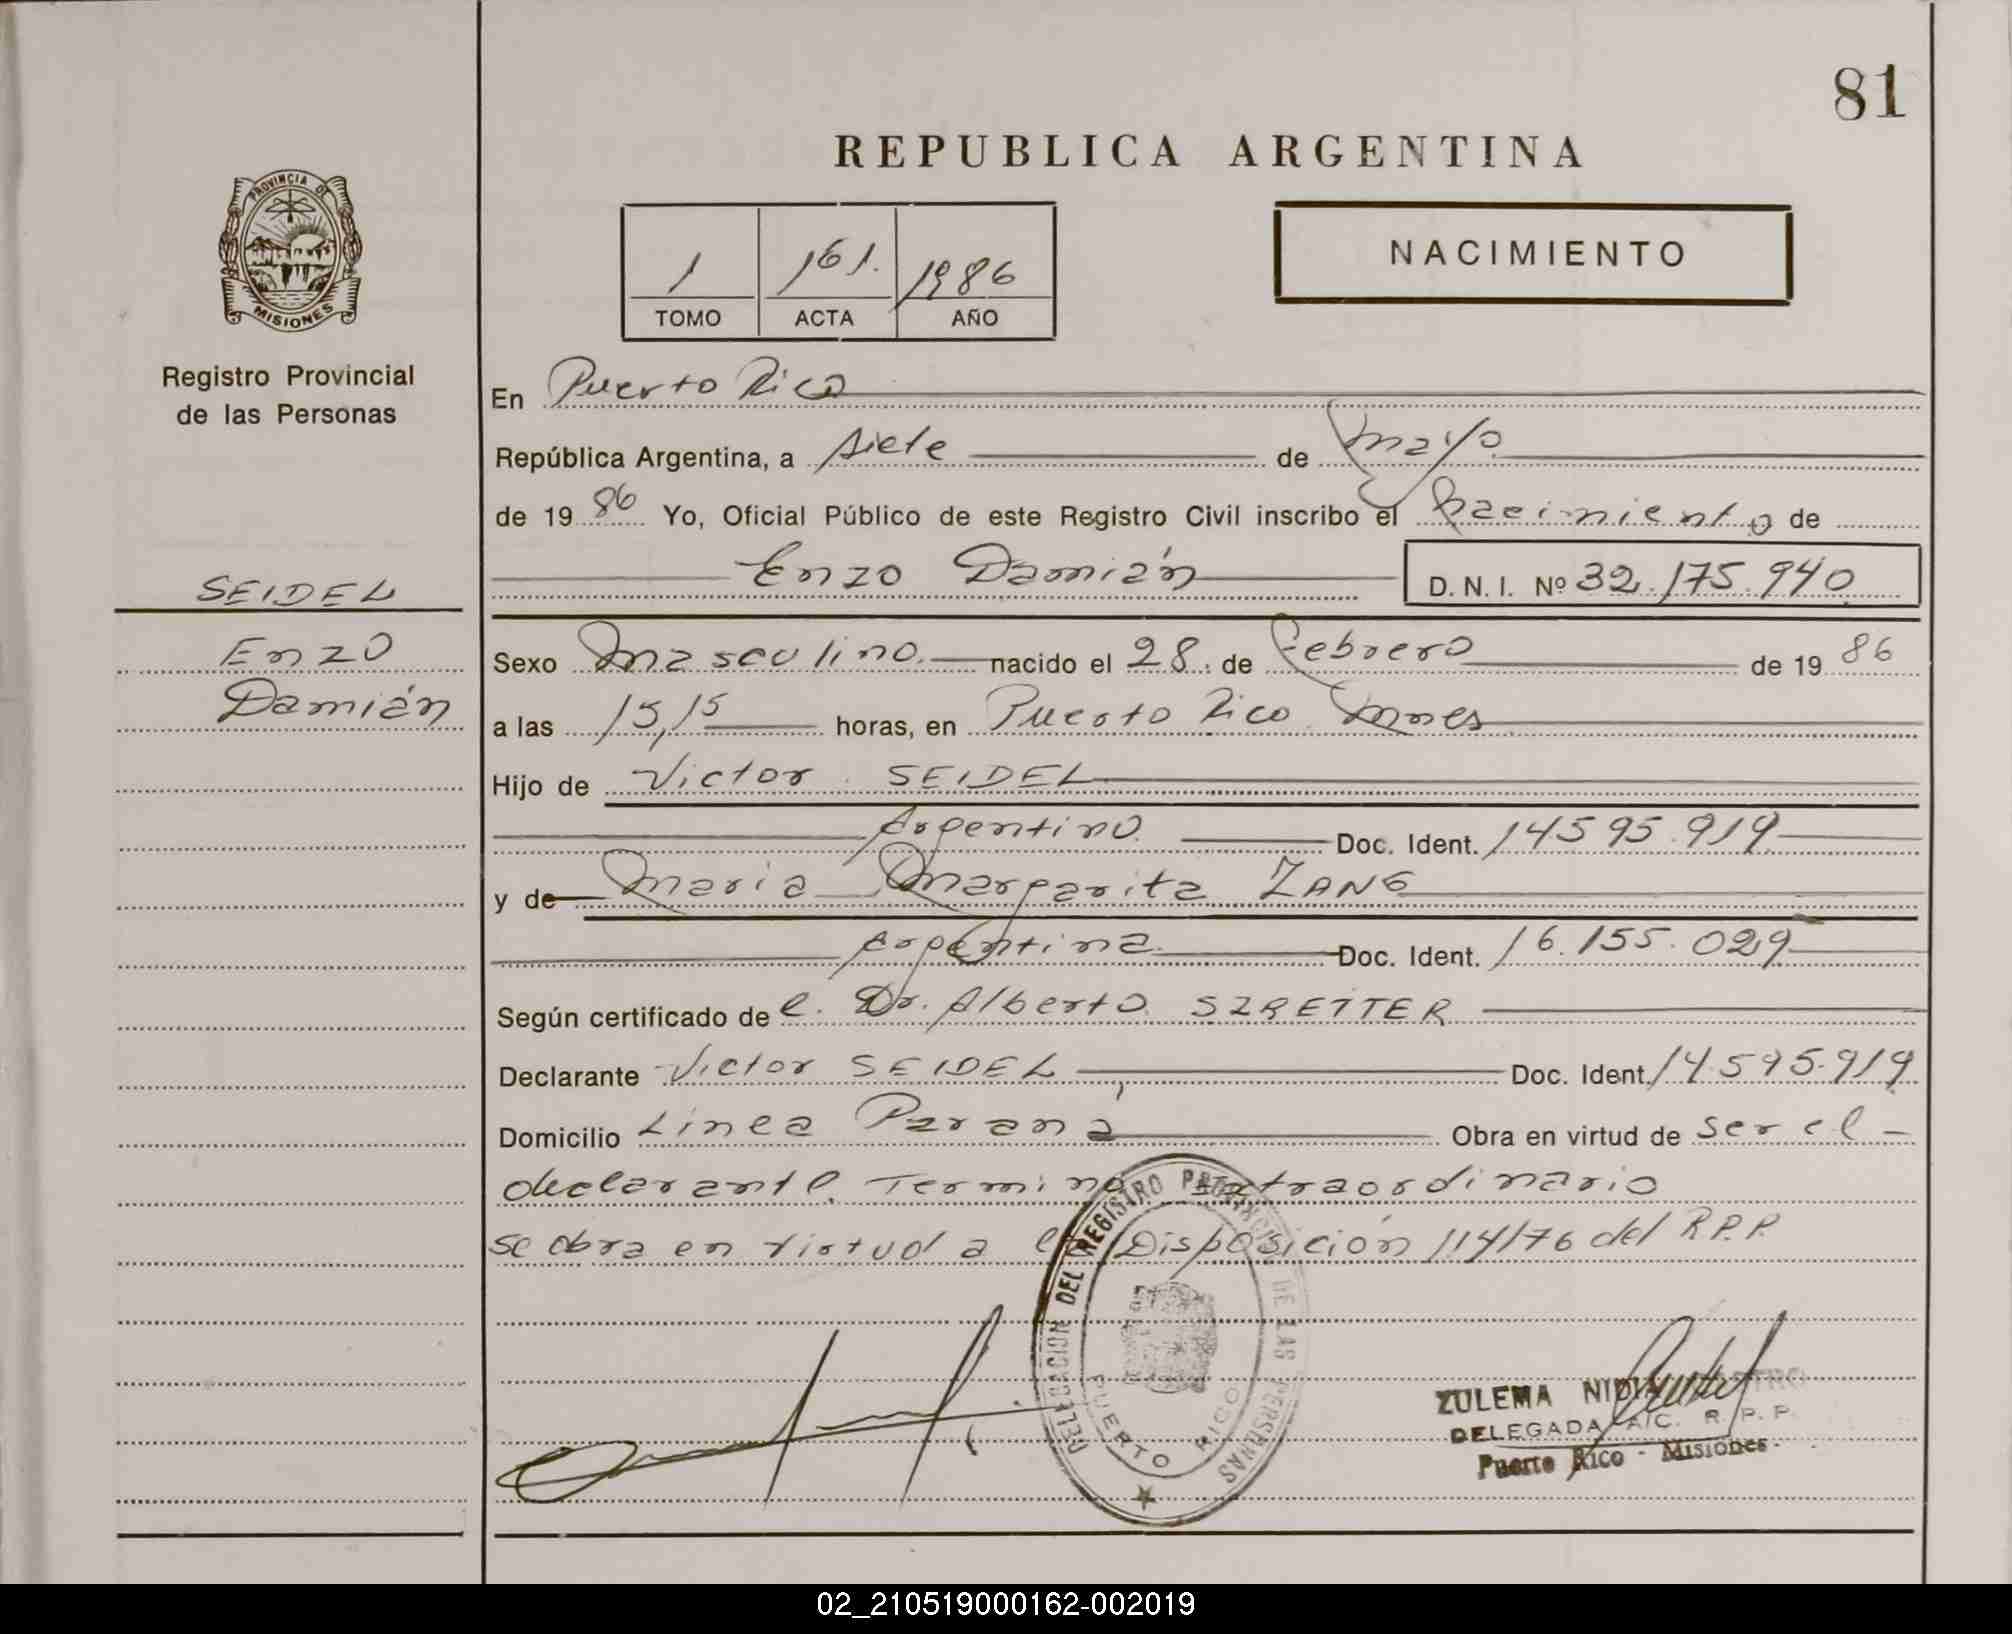 81
REPUBLICA ARGENTINA
PROVINCIA DE
MISIONES
Registro Provincial
de las Personas
1 161. 1986
TOMO ACTA AÑO
NACIMIENTO
En Puerto Rico
República Argentina, a siete de mayo
de 1986 Yo, Oficial Público de este Registro Civil inscribo el Nacimiento de
Enzo Damián D. N. I. Nº 32.175.940
SEIDEL
Enzo
Damián
Sexo Masculino. nacido el 28. de Febrero de 1986
a las 15,15 horas, en Puerto Rico Mnes
Hijo de Victor SEIDEL
Argentino. Doc. Ident. 14595.919
y de Maria Margarita ZANG
Argentina Doc. Ident. 16.155.029
Según certificado de l. Dr. Alberto SZRETTER
Declarante Victor SEIDEL Doc. Ident. 14.595.919
Domicilio Línea Paraná Obra en virtud de ser el
declarante. Termino extraordinario
se obra en virtud a la Disposición 114/76 del R.P.P.
DELEGACION DEL REGISTRO PROVINCIAL DE LAS PERSONAS
PUERTO RICO
ZULEMA NIDIA
DELEGADA A/C. R. P. P.
Puerto Rico - Misiones.
02_210519000162-002019